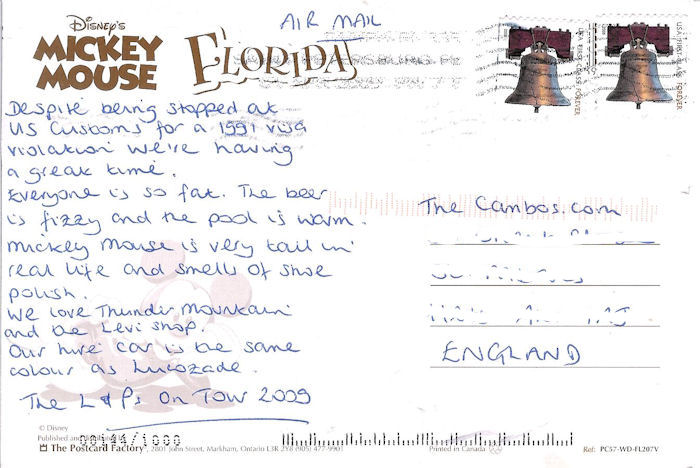 AIR MAIL
DISNEY'S
MICKEY
MOUSE
FLORIDA
USA FIRST-CLASS FOREVER
USA FIRST-CLASS FOREVER
Despite being stopped at
US Customs for a 1991 visa
violation we're having
a great time.
Everyone is so fat. The beer
is fizzy and the pool is warm.
Mickey Mouse is very tall in
real life and smells of shoe
polish.
We love Thunder Mountain
and the Levi shop.
Our hire car is the same
colour as Lucozade.
The L&Ps On Tow 2009
The Cambos.com
ENGLAND
© Disney
Published and
The Postcard Factory, 2801 John Street, Markham, Ontario L3R 2Y8 (905) 477-9901
00144/1000
Printed in Canada
Ref: PC57-WD-FL207V